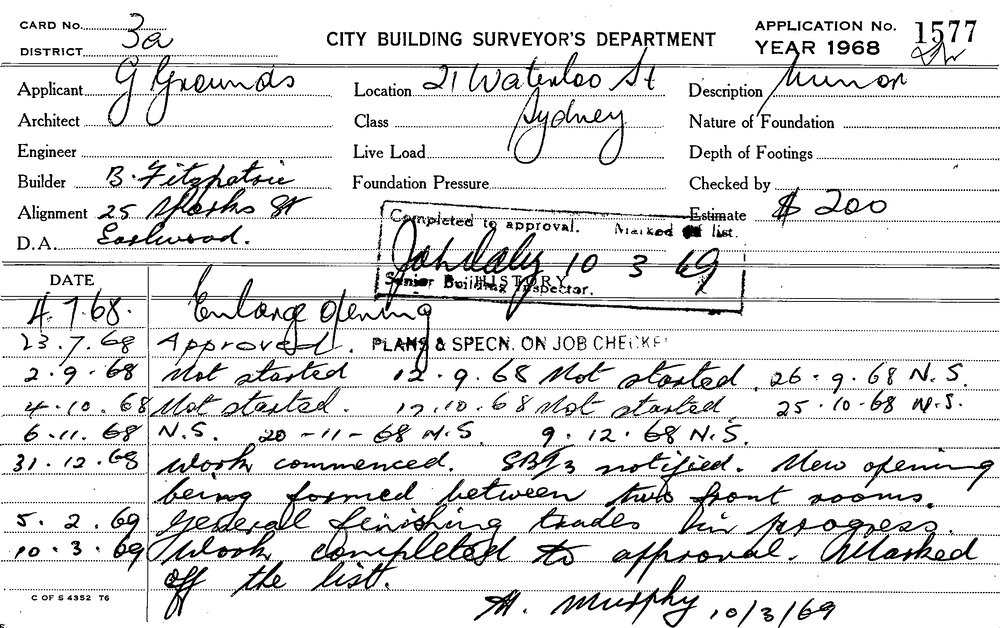 CARD No.
DISTRICT 3a
CITY BUILDING SURVEYOR'S DEPARTMENT
APPLICATION No. 1577
YEAR 1968
Applicant G Grounds
Location 21 Waterloo St
Sydney
Description Minor
Architect
Class
Nature of Foundation
Engineer
Live Load
Depth of Footings
Builder B. Fitzpatric
Foundation Pressure
Checked by
Alignment 25 Sparks St
Eastwood.
Estimate $ 200
D.A.
Completed to approval. Marked off list.
John Daly 10 3 69
Senior Building Inspector.
DATE
HISTORY
4.7.68. Enlarge opening
23.7.68 Approved. PLANS & SPECN. ON JOB CHECKE
2.9.68 Not started 12.9.68 Not started. 26.9.68 N.S.
4.10.68 Not started. 17.10.68 Not started. 25.10.68 N.S.
6.11.68 N.S. 20-11-68 N.S. 9.12.68 N.S.
31.12.68 Work commenced. notified. New opening
being formed between two front rooms.
5.2.69 General finishing trades in progress.
10.3.69 Work completed to approval. Marked
off the list.
H. Murphy 10/3/69
C OF S 4352 T6